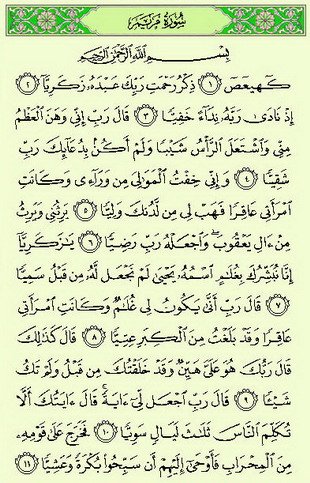 سُورَةُ مَرْيَمَ
بِسْمِ ٱللَّهِ ٱلرَّحْمَٰنِ ٱلرَّحِيمِ
كٓهيعٓصٓ ۝١ ذِكْرُ رَحْمَتِ رَبِّكَ عَبْدَهُۥ زَكَرِيَّآ ۝٢
إِذْ نَادَىٰ رَبَّهُۥ نِدَآءً خَفِيًّا ۝٣ قَالَ رَبِّ إِنِّى وَهَنَ ٱلْعَظْمُ
مِنِّى وَٱشْتَعَلَ ٱلرَّأْسُ شَيْبًا وَلَمْ أَكُنۢ بِدُعَآئِكَ رَبِّ
شَقِيًّا ۝٤ وَإِنِّى خِفْتُ ٱلْمَوَٰلِىَ مِن وَرَآءِى وَكَانَتِ
ٱمْرَأَتِى عَاقِرًا فَهَبْ لِى مِن لَّدُنكَ وَلِيًّا ۝٥ يَرِثُنِى وَيَرِثُ
مِنْ ءَالِ يَعْقُوبَ ۖ وَٱجْعَلْهُ رَبِّ رَضِيًّا ۝٦ يَٰزَكَرِيَّآ
إِنَّا نُبَشِّرُكَ بِغُلَٰمٍ ٱسْمُهُۥ يَحْيَىٰ لَمْ نَجْعَل لَّهُۥ مِن قَبْلُ سَمِيًّا
۝٧ قَالَ رَبِّ أَنَّىٰ يَكُونُ لِى غُلَٰمٌ وَكَانَتِ ٱمْرَأَتِى
عَاقِرًا وَقَدْ بَلَغْتُ مِنَ ٱلْكِبَرِ عِتِيًّا ۝٨ قَالَ كَذَٰلِكَ
قَالَ رَبُّكَ هُوَ عَلَىَّ هَيِّنٌ وَقَدْ خَلَقْتُكَ مِن قَبْلُ وَلَمْ تَكُ
شَيْـًٔا ۝٩ قَالَ رَبِّ ٱجْعَل لِّىٓ ءَايَةً ۚ قَالَ ءَايَتُكَ أَلَّا
تُكَلِّمَ ٱلنَّاسَ ثَلَٰثَ لَيَالٍ سَوِيًّا ۝١٠ فَخَرَجَ عَلَىٰ قَوْمِهِۦ
مِنَ ٱلْمِحْرَابِ فَأَوْحَىٰٓ إِلَيْهِمْ أَن سَبِّحُوا۟ بُكْرَةً وَعَشِيًّا ۝١١